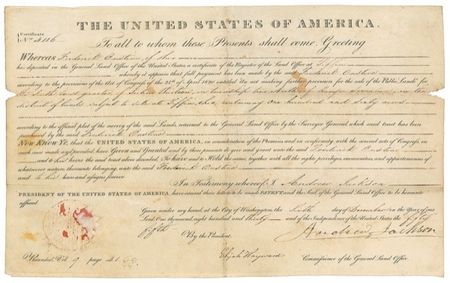 THE UNITED STATES OF AMERICA.
Certificate
No.
To all to whom these Presents shall come, Greeting
Whereas Frederick
ha deposited in the General Land Office of the United States a certificate of the Register of the Land Office at Tiffin
whereby it appears that full payment has been made by the Frederick
according to the provisions of the Act of Congress of the of April 1820, entitled "An act making further provision for the sale of the Public Lands" for
the
district of lands subject to sale at Tiffin Ohio, containing one hundred and sixty acres
according to the official plat of the survey of the said Lands, returned to the General Land Office by the Surveyor General which said tract has been
purchased by the said Frederick
Now Know Ye, that the UNITED STATES OF AMERICA, in consideration of the Premises and in conformity with the several acts of Congress, in
such case made and provided, have Given and Granted and by these presents do give and grant unto the said Frederick
and to his heirs the said tract above described: To have and to Hold the same, together with all the rights, privileges, immunities, and appurtenances of
whatsoever nature thereunto belonging, unto the said Frederick
and to his heirs and assigns forever
In Testimony whereof, I, Andrew Jackson
PRESIDENT OF THE UNITED STATES OF AMERICA have caused these Letters to be made Patent, and the Seal of the General Land Office to be hereunto
affixed
Given under my hand at the City of Washington, the day of in the Year of our
Lord one thousand eight hundred and thirty and of the Independence of the United States the fifty
fifth
By the President: Andrew Jackson
Recorded, Vol. 9 page Elijah Hayward Commissioner of the General Land Office.